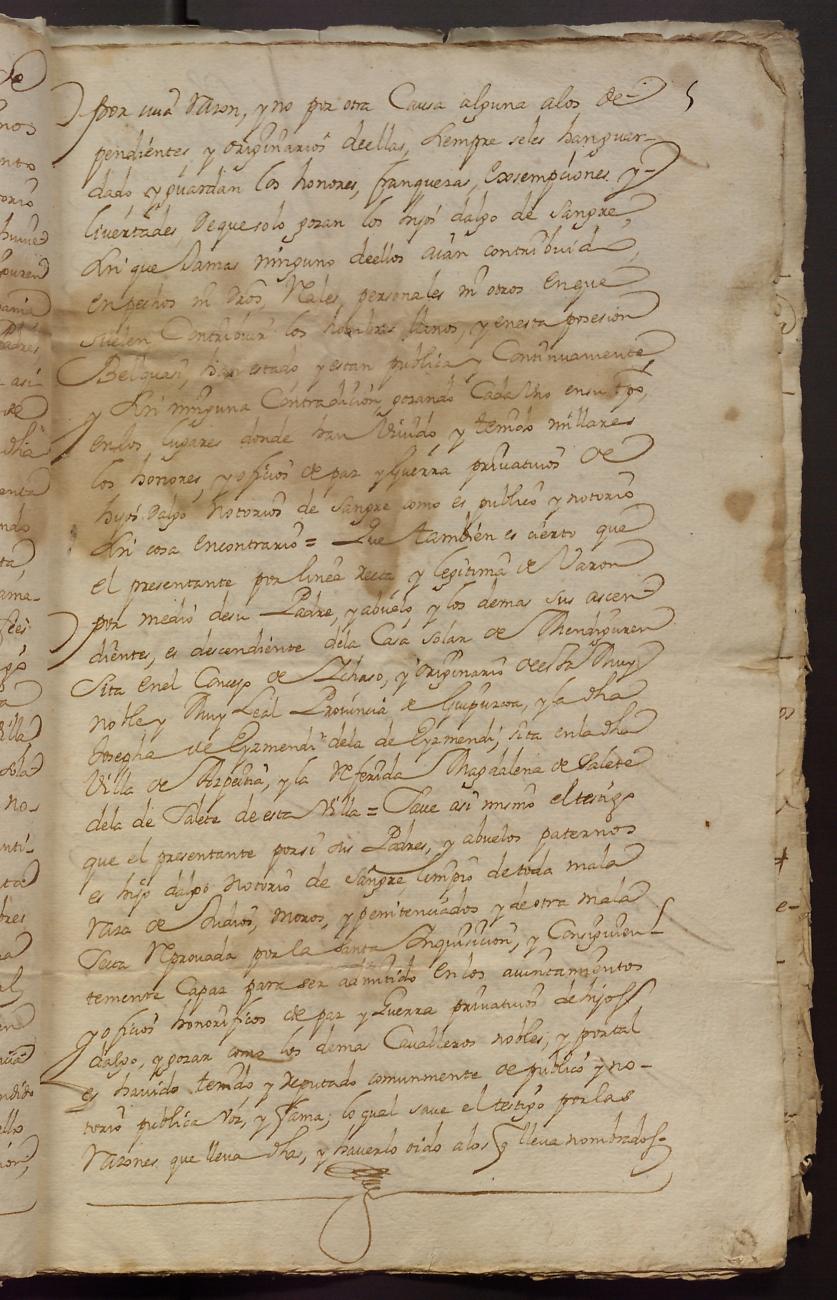 5
por cuia razon, y no por otra Causa alguna alos de-
pendientes y originarios deellas, siempre seles hanguar-
dado y guardan los honores, franquezas, Exsempciones y-
livertades, de que solo gozan los hijos dalgo de sangre,
sin que Jamas ninguno deellos aian contribuido,
en pechos ni dros, Reales, personales ni otros en que
suelen Contribuir los hombres llanos, y en esta posesion
han estado y estan publica y Continuamente
y sin ninguna Contradicion, gozando Cada Uno en su tpo,
en los lugares donde han Vivido y tenido millares
los honores, y oficios de paz y Guerra privativos de
hijos dalgo Notorios de sangre como es publico y notorio
sin cosa en contrario = Que tambien es cierto que
el presentante por linea recta y legitima de Varon
por medio desu Padre, y abuelo y los demas sus ascen
dientes, es descendiente dela Casa solar de Mendiguren
sita en el Concejo de Ichaso, y originario de esta Muy
noble y Muy Leal Provincia de Guipuzcoa, y la dha
Josepha de Eyzmendi dela de Eyzmendi, sita en la dha
Villa de Azpeitia, y la Referida Magdalena de Zalete
dela de Zalete de esta Villa = Save asi mismo el testigo
que el presentante por si sus Padres, y abuelos paternos
es hijo dalgo Notorio de Sangre limpio de toda mala
raza de Judios, moros, y penitenciados y de otra mala
Secta Reprovada por la santa Inquisicion, y Consiguien-
temente Capaz para ser admitido en los aiuntamientos
y oficios honorificos de paz y Guerra privativos de hijos
dalgo, y gozar como los dema Cavalleros nobles, y por tal
es havido tenido y reputado comunmente de publico y no-
torio publica voz, y fama; lo qual save el testigo por las
razones que lleva dhas, y haverlo oido alos q lleva nombrados-